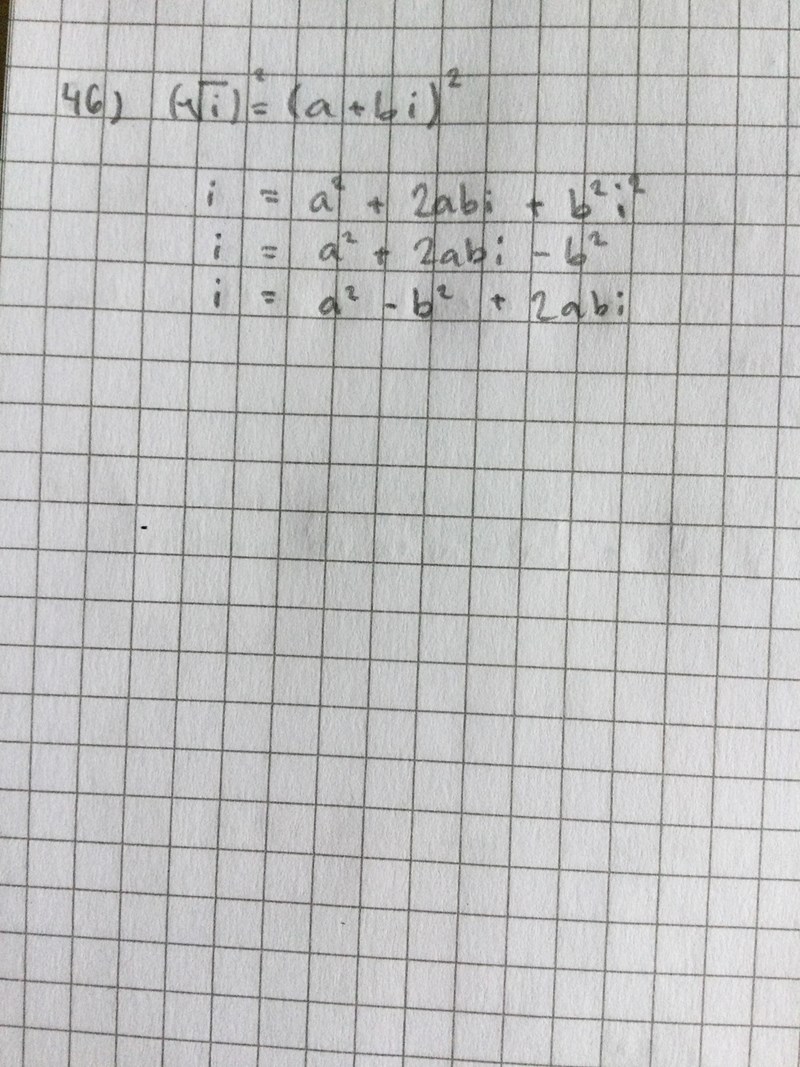 46) (√i)² = (a + bi)²
i = a² + 2abi + b²i²
i = a² + 2abi - b²
i = a² - b² + 2abi